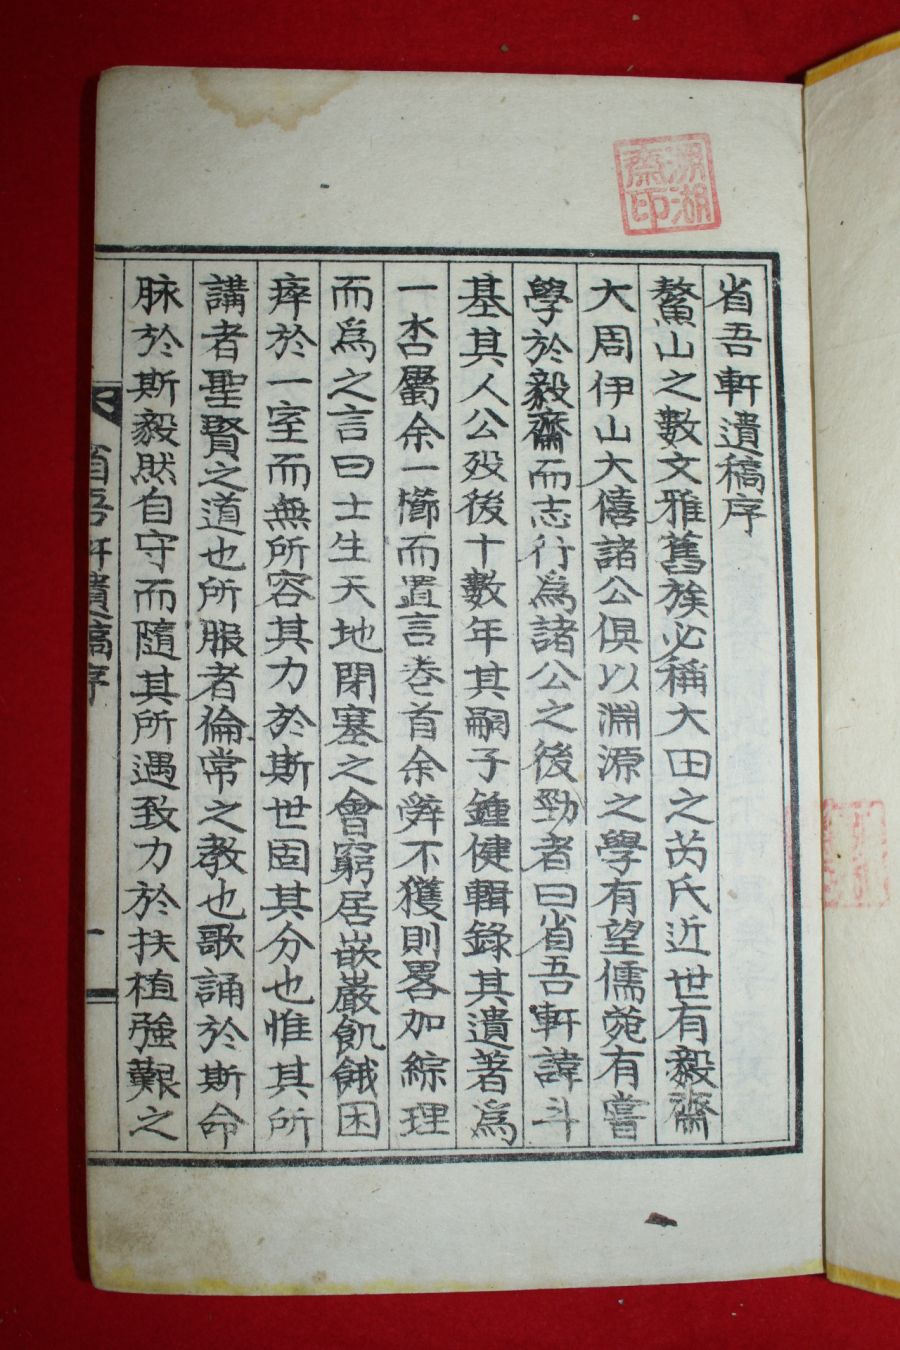 省吾軒遺稿序
鰲山之數文雅舊族必稱大田之芮氏近世有毅齋
大周伊山大僖諸公俱以淵源之學有望儒苑有嘗
學於毅齋而志行爲諸公之後勁者曰省吾軒諱斗
基其人公歿後十數年其嗣子鍾健輯錄其遺著爲
一㕻屬余一櫛而置言卷首余辭不獲則畧加綜理
而爲之言曰士生天地閉塞之會窮居嵌巖飢餓困
瘁於一室而無所容其力於斯世固其分也惟其所
講者聖賢之道也所服者倫常之敎也歌誦於斯命
脉於斯毅然自守而隨其所遇致力於扶植強艱之
省吾軒遺稿序
一
淵湖齋印